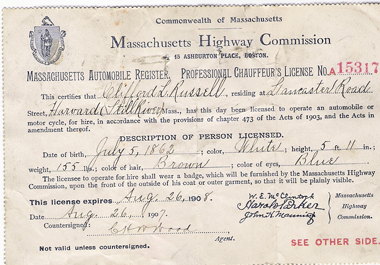 Commonwealth of Massachusetts
Massachusetts Highway Commission
15 ASHBURTON PLACE, BOSTON.
MASSACHUSETTS AUTOMOBILE REGISTER, PROFESSIONAL CHAUFFEUR'S LICENSE NO. A 15317
This certifies that Clifford Russell, residing at Lancaster Road
Street, Harvard Still River, Mass., has this day been licensed to operate an automobile or
motor cycle, for hire, in accordance with the provisions of chapter 473 of the Acts of 1903, and the Acts in
amendment thereof.
DESCRIPTION OF PERSON LICENSED.
Date of birth, July 5, 1862; color, White; height, 5 ft. 11 in.;
weight, 155 lbs.; color of hair, Brown; color of eyes, Blue
The licensee to operate for hire shall wear a badge, which will be furnished by the Massachusetts Highway
Commission, upon the front of the outside of his coat or outer garment, so that it will be plainly visible.
This license expires Aug. 26, 1908.
Date Aug. 26, 1907.
Countersigned: C H W Wood
Agent.
W. E. McClintock
Harold Parker
John H. Manning
Massachusetts
Highway
Commission.
Not valid unless countersigned.
SEE OTHER SIDE.